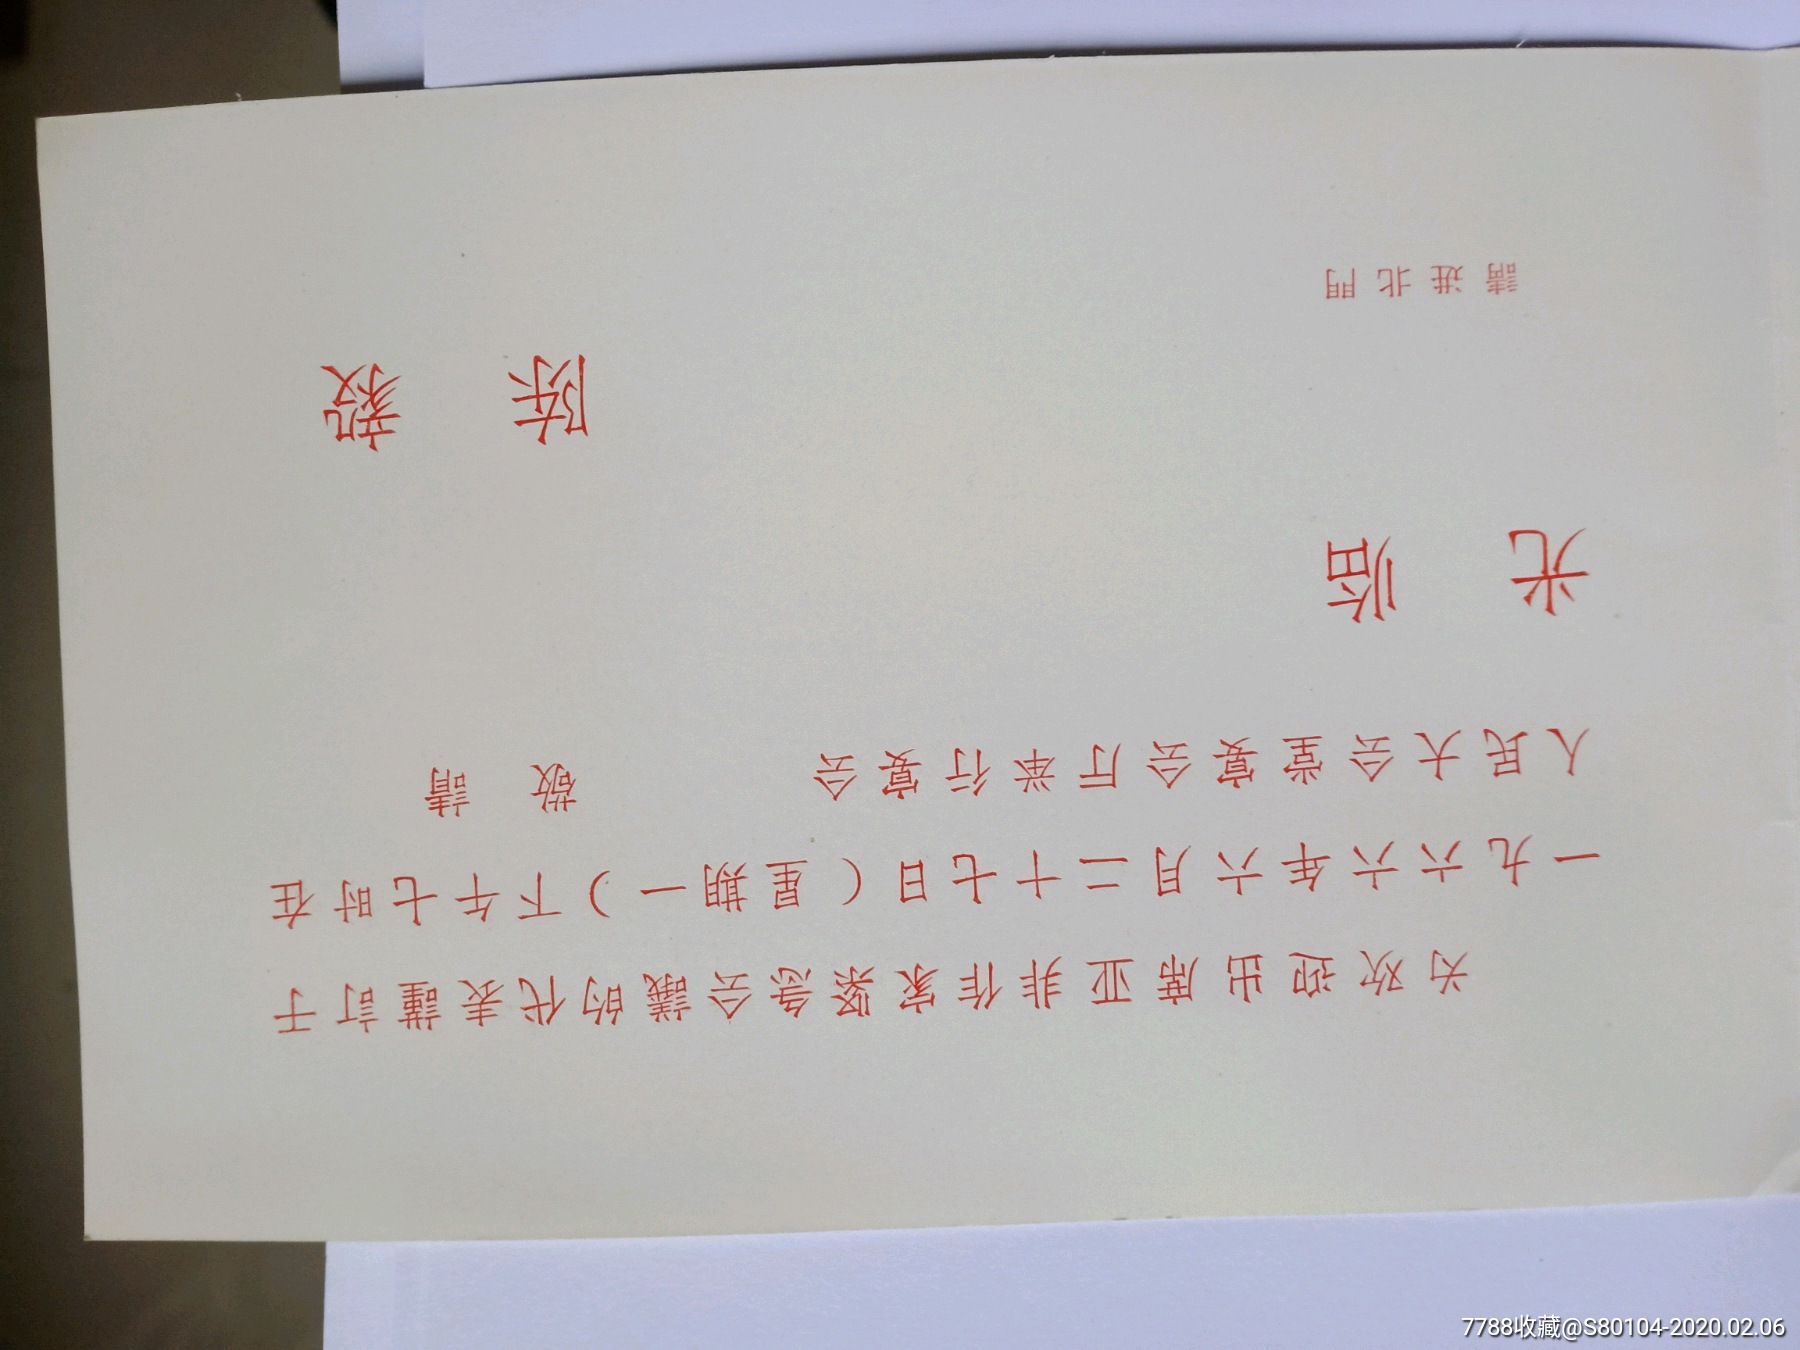 为欢迎出席亚非作家紧急会議的代表謹訂于
一九六六年六月二十七日(星期一)下午七时在
人民大会堂宴会厅举行宴会 敬請
光临
陈毅
請进北門
7788收藏@S80104-2020.02.06